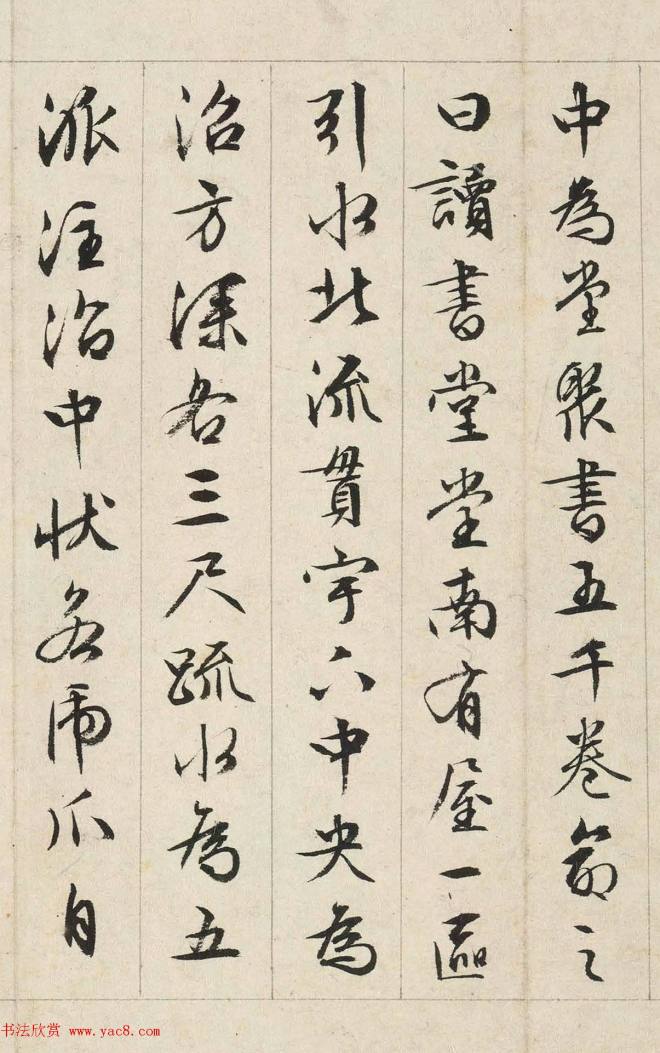 中為堂聚書五千卷命之
曰讀書堂堂南有屋一區
引水北流貫宇下中央為
沼方深各三尺疏水為五
派注沼中狀若虎爪自
书法欣赏 www.yac8.com